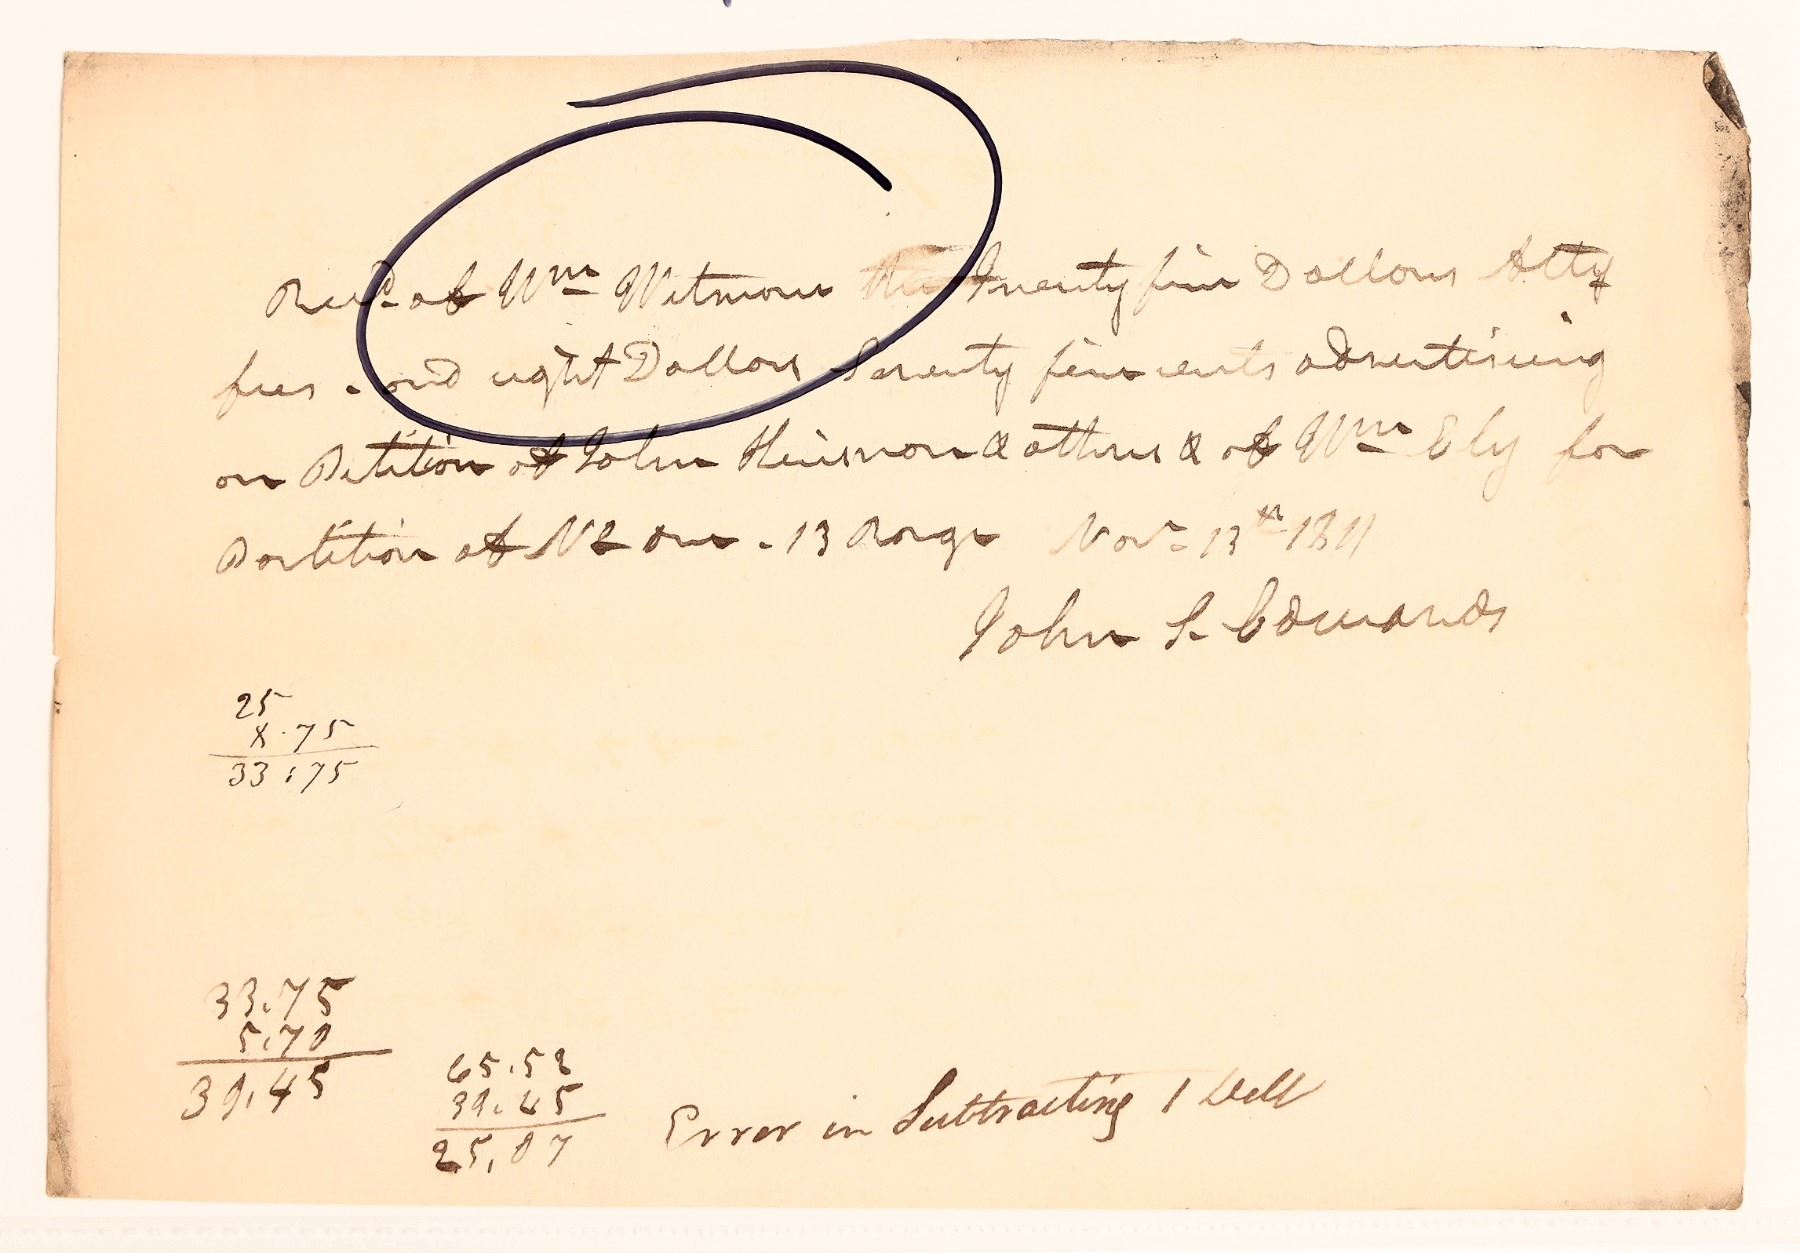 Recd. of Wm Wetmore the Twenty five Dollars Atty
fees - and eight Dollars Seventy five cents advertising
on Petition of John Kinsman & others & of Wm Ely for
Partition of No one - 13 Range Novr. 13th 1811
John S. Edwards
25
8.75
33:75
33.75
5.70
39.45
65.52
39.45
25,07
Error in Subtracting 1 Doll